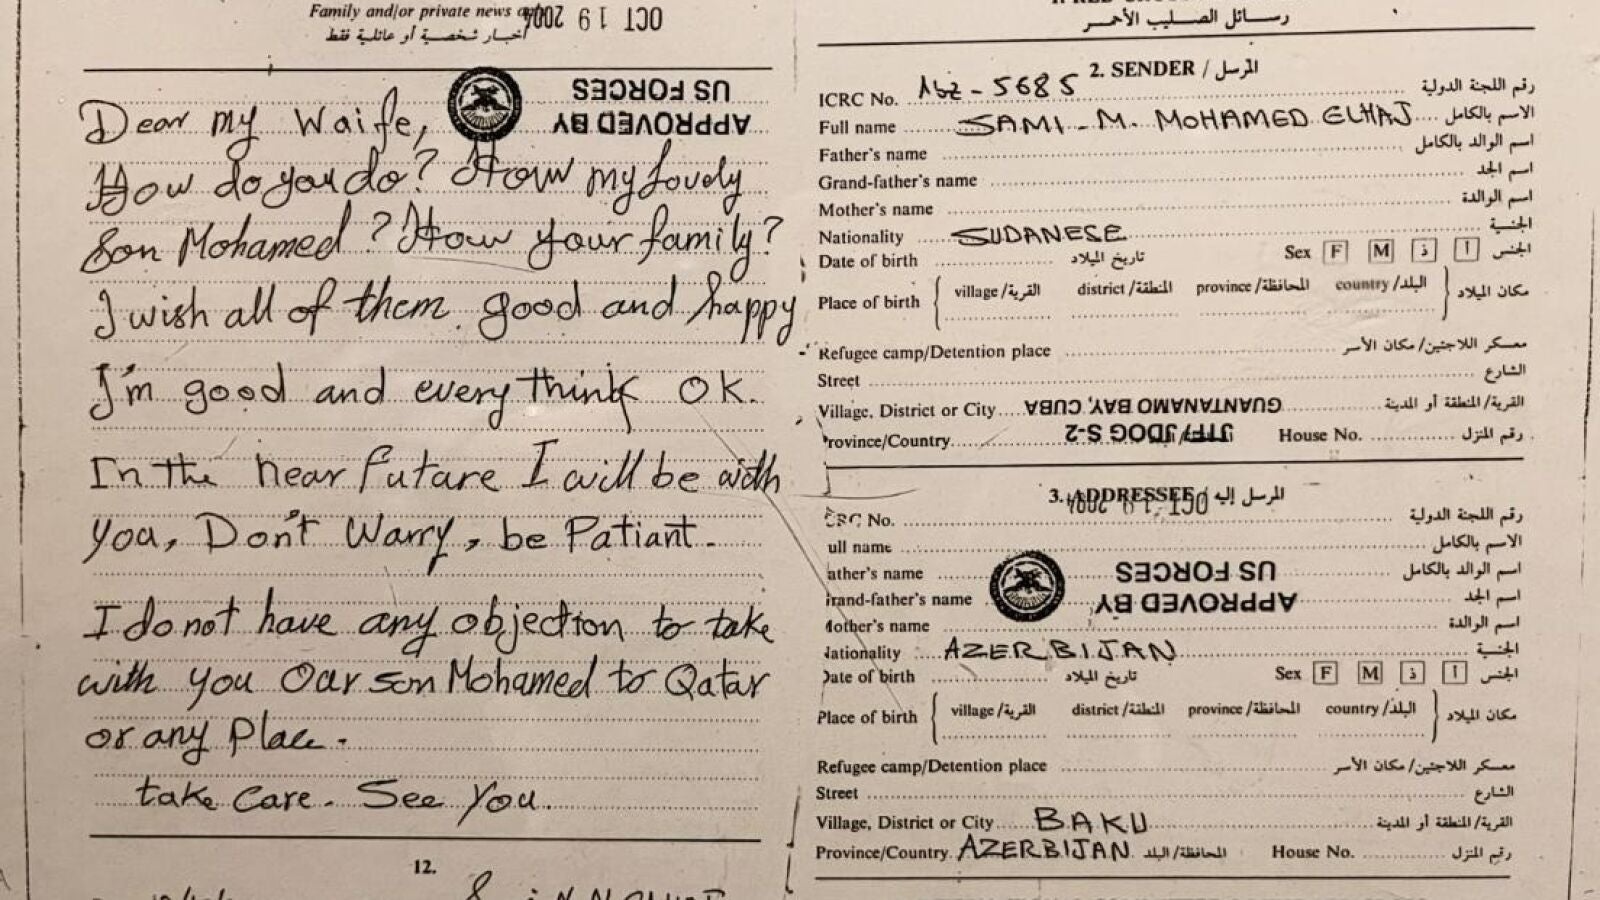 Family and/or private news
أخبار شخصية أو عائلية فقط
OCT 19 2004
APPROVED BY
US FORCES
Dear my Waife,
How do you do? How my lovely
Son Mohamed? How your family?
I wish all of them good and happy
I'm good and every think OK.
In the near Future I will be with
you, Don't Warry, be Patiant.
I do not have any objection to take
with you Our son Mohamed to Qatar
or any Place.
take Care. See You.
12.
رسائل الصليب الأحمر
2. SENDER / المرسل
ICRC No. رقم اللجنة الدولية
Full name SAMI - M. MOHAMED ELHAJ الاسم بالكامل
Father's name اسم الوالد بالكامل
Grand-father's name اسم الجد
Mother's name اسم الوالدة
Nationality SUDANESE الجنسية
Date of birth تاريخ الميلاد Sex F M ذ أ الجنس
Place of birth village/القرية district/المنطقة province/المحافظة country/البلد مكان الميلاد
Refugee camp/Detention place معسكر اللاجئين/مكان الأسر
Street الشارع
Village, District or City GUANTANAMO BAY, CUBA القرية/المنطقة أو المدينة
Province/Country JTF/JDOG S-2 House No. رقم المنزل
3. ADDRESSEE / المرسل إليه
OCT 19 2004
CRC No. رقم اللجنة الدولية
ull name الاسم بالكامل
ather's name اسم الوالد بالكامل
APPROVED BY
US FORCES
rand-father's name اسم الجد
other's name اسم الوالدة
Nationality AZERBIJAN الجنسية
Date of birth تاريخ الميلاد Sex F M ذ أ الجنس
Place of birth village/القرية district/المنطقة province/المحافظة country/البلد مكان الميلاد
Refugee camp/Detention place معسكر اللاجئين/مكان الأسر
Street الشارع
Village, District or City BAKU القرية/المنطقة أو المدينة
Province/Country AZERBIJAN المحافظة/البلد House No. رقم المنزل